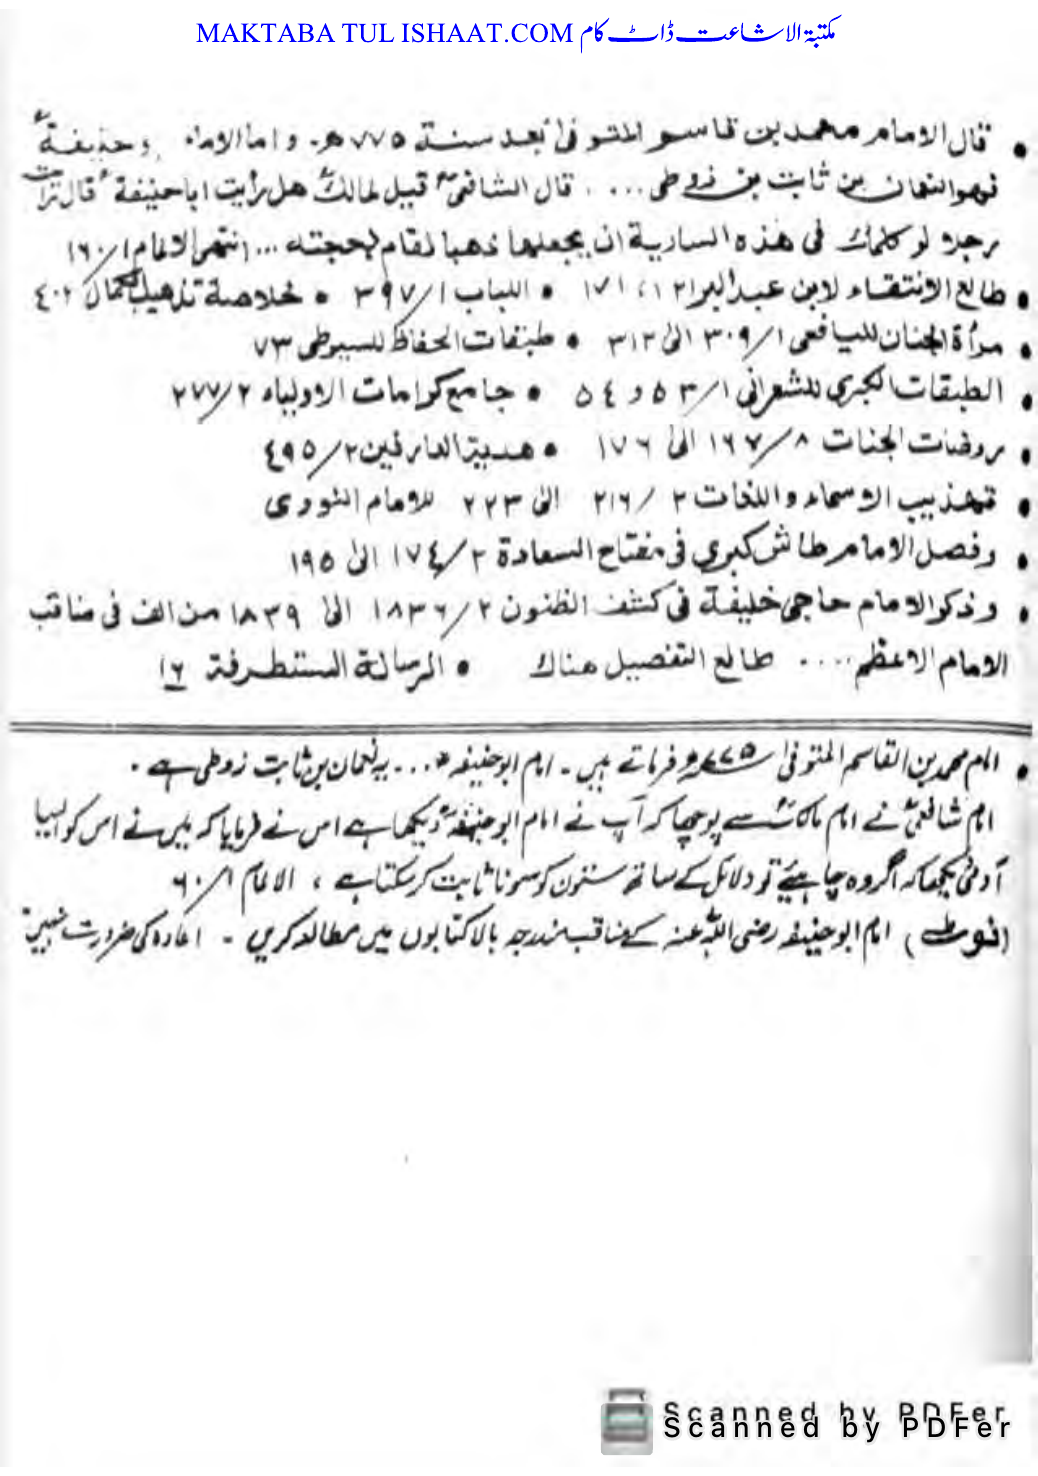 MAKTABA TUL ISHAAT.COM مکتبۃ الاشاعت ڈاٹ کام
• قال الامام محمد بن قاسم المتوفیٰ بعد سنة ٧٧٥ھ۔ واما الامام بوحنیفة
فهو النعمان بن ثابت بن زوطی .... قال الشافعیؒ قیل لمالکؒ هل رأیت اباحنیفةؒ قال رأیت
رجلا لو کلمك فی هذه الساریة ان یجعلها ذهبا لقام بحجته ... انتهی الالمام ١/٦٠
• طالع الانتقاء لابن عبد البر ١٢١، ١٧١ • اللباب ١/٣٩٧ • خلاصة تذهیب الکمال ٤٠٢
• مرأة الجنان للیافعی ١/٣٠٩ الیٰ ٣١٢ • طبقات الحفاظ للسیوطی ٧٣
• الطبقات الکبری للشعرانی ١/٥٣ و ٥٤ • جامع کرامات الاولیاء ٢/٢٧٧
• روضات الجنات ٨/١٦٧ الیٰ ١٧٦ • هدیة العارفین ٢/٤٩٥
• تهذیب الاسماء واللغات ٢/٢١٦ الیٰ ٢٢٣ للامام النووی
• وفصل الامام طاش کبری فی مفتاح السعادة ٢/١٧٤ الیٰ ١٩٥
• وذکر الامام حاجی خلیفة فی کشف الظنون ٢/١٨٣٦ الیٰ ١٨٣٩ من الف فی مناقب
الامام الاعظم .... طالع التفصیل هناك • الرسالة المستطرفة ١٦
• امام محمد بن القاسم المتوفیٰ ٧٧٥ھ فرماتے ہیں۔ امام ابوحنیفہ ... یہ نعمان بن ثابت زوطی ہے۔
امام شافعیؒ نے امام مالکؒ سے پوچھا کہ آپ نے امام ابوحنیفہؒ دیکھا ہے اس نے فرمایا کہ میں نے اس کو ایسا
آدمی دیکھا کہ اگر وہ چاہئے تو دلائل کے ساتھ ستون کو سونا ثابت کر سکتا ہے ، الالمام ١/٦٠
(نوٹ) امام ابوحنیفہ رضی اللہ عنہ کے مناقب مندرجہ بالا کتابوں میں مطالعہ کریں ۔ اعادہ کی ضرورت نہیں
Scanned by PDFer
Scanned by PDFer